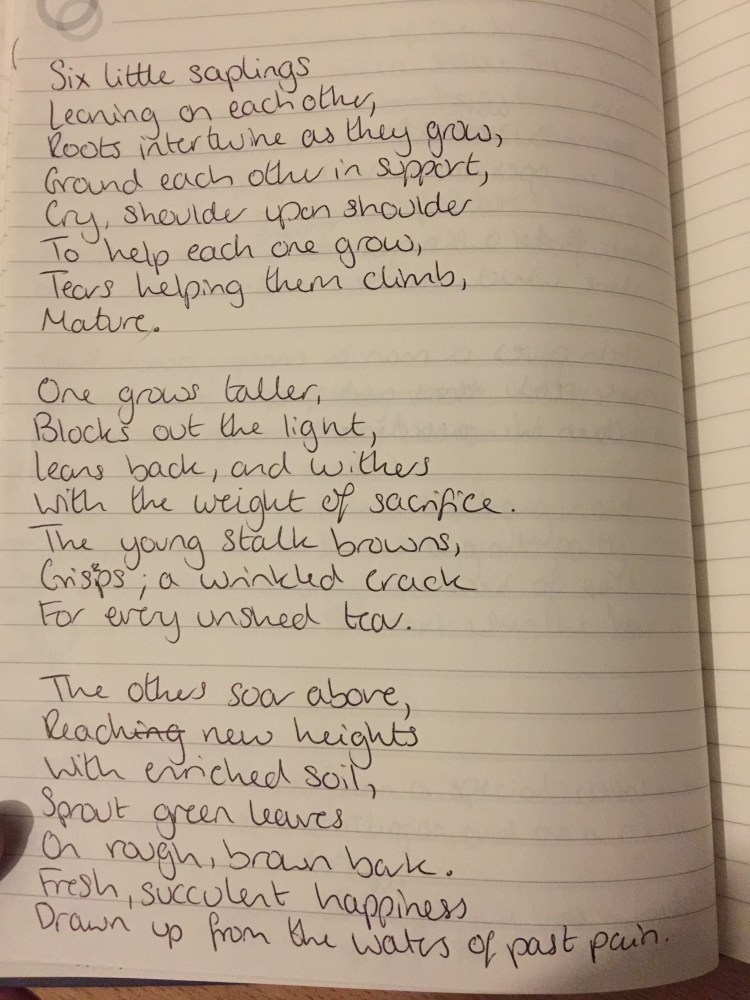 Six little saplings
Leaning on each other,
Roots intertwine as they grow,
Ground each other in support,
Cry, shoulder upon shoulder
To help each one grow,
Tears helping them climb,
Mature.
One grows taller,
Blocks out the light,
leans back, and withers
with the weight of sacrifice.
The young stalk browns,
Crisps; a wrinkled crack
For every unshed tear.
The others soar above,
Reaching new heights
With enriched soil,
Sprout green leaves
On rough, brown bark.
Fresh, succulent happiness
Drawn up from the waters of past pain.